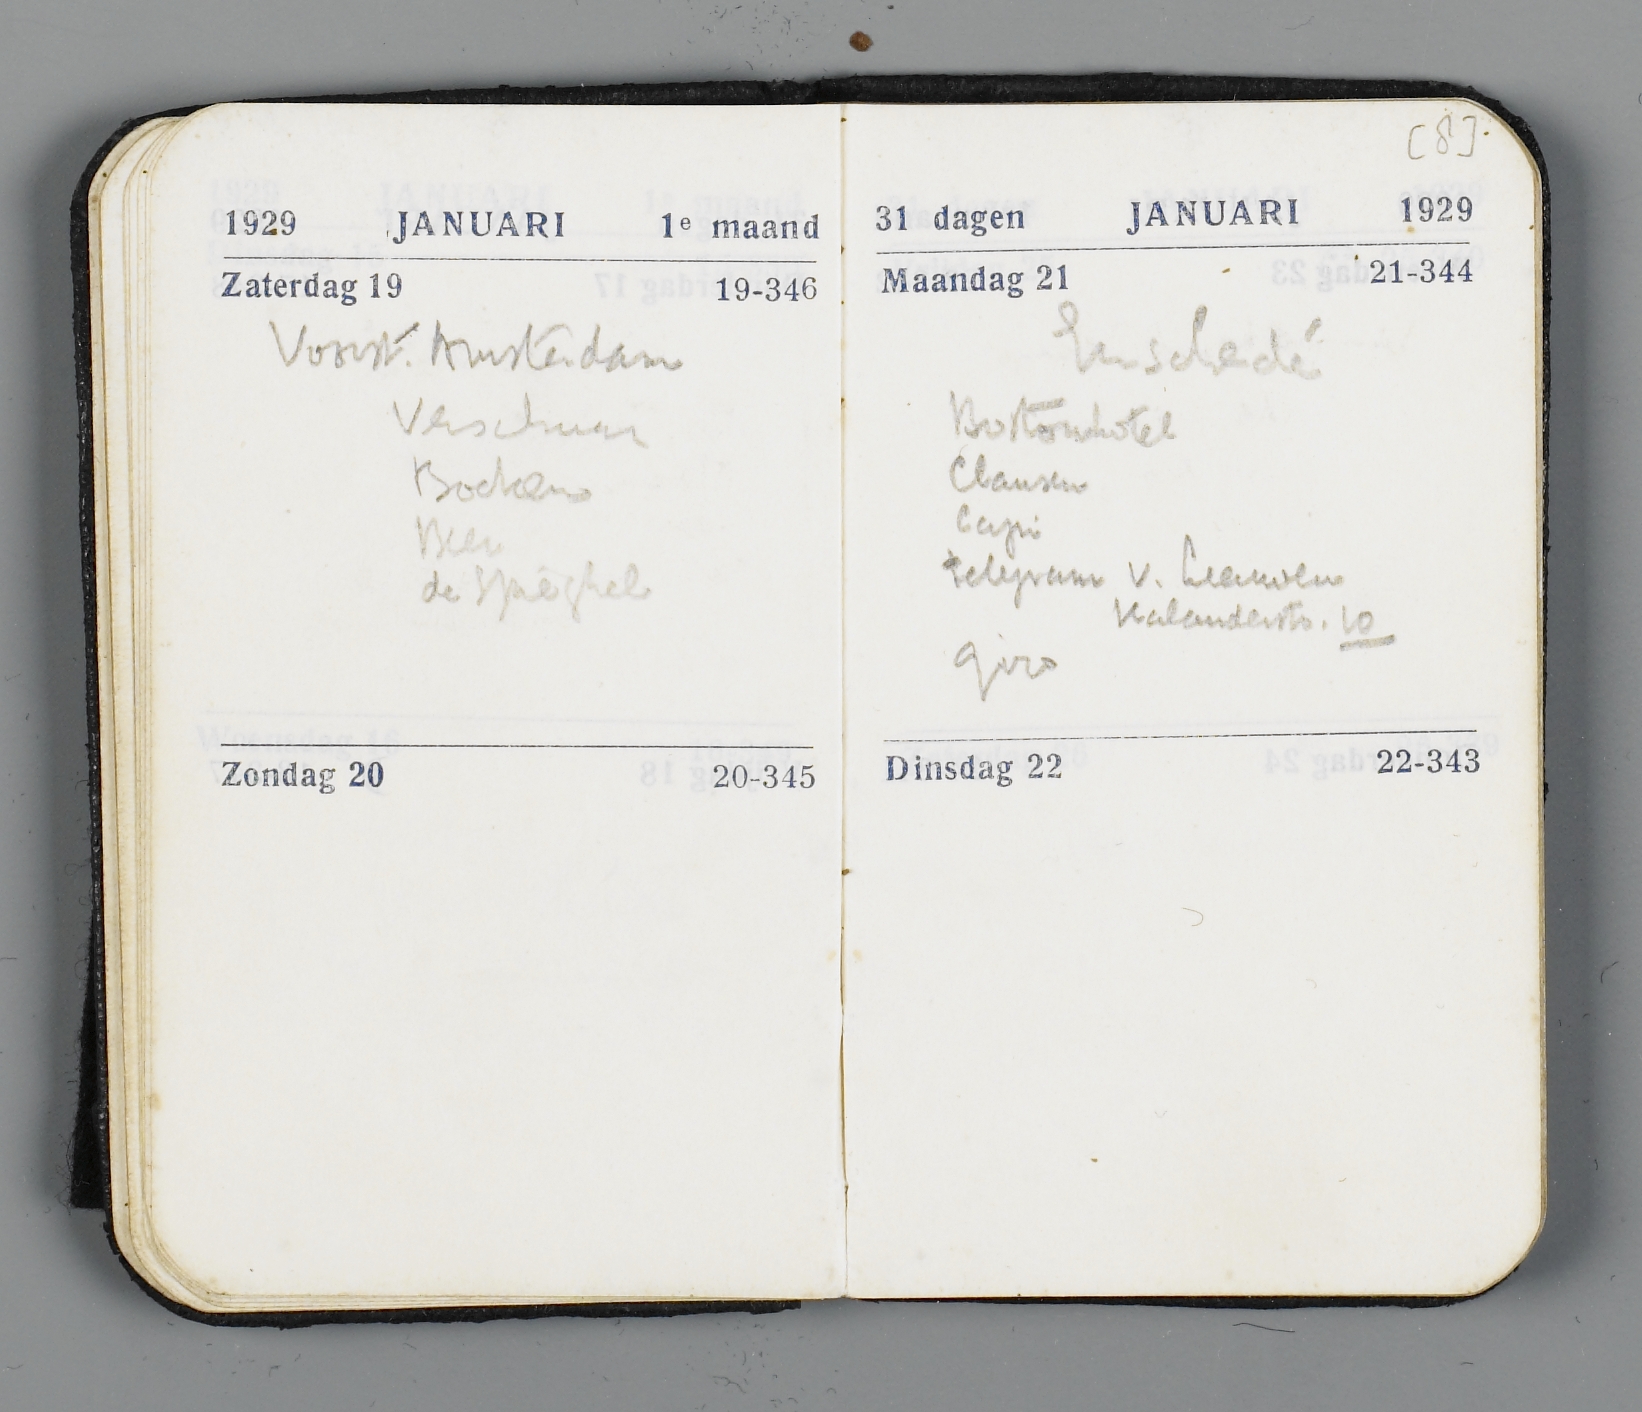 1929 JANUARI 1e maand
Zaterdag 19 19-346
Voorst. Amsterdam
Verschuur
Boekeno
Ben
de Spieghel
Zondag 20 20-345
[8]
31 dagen JANUARI 1929
Maandag 21 21-344
Enschedé
Clausen
Capi
telegram v. Leeuwen
Kalanderstr. 10
giro
Dinsdag 22 22-343